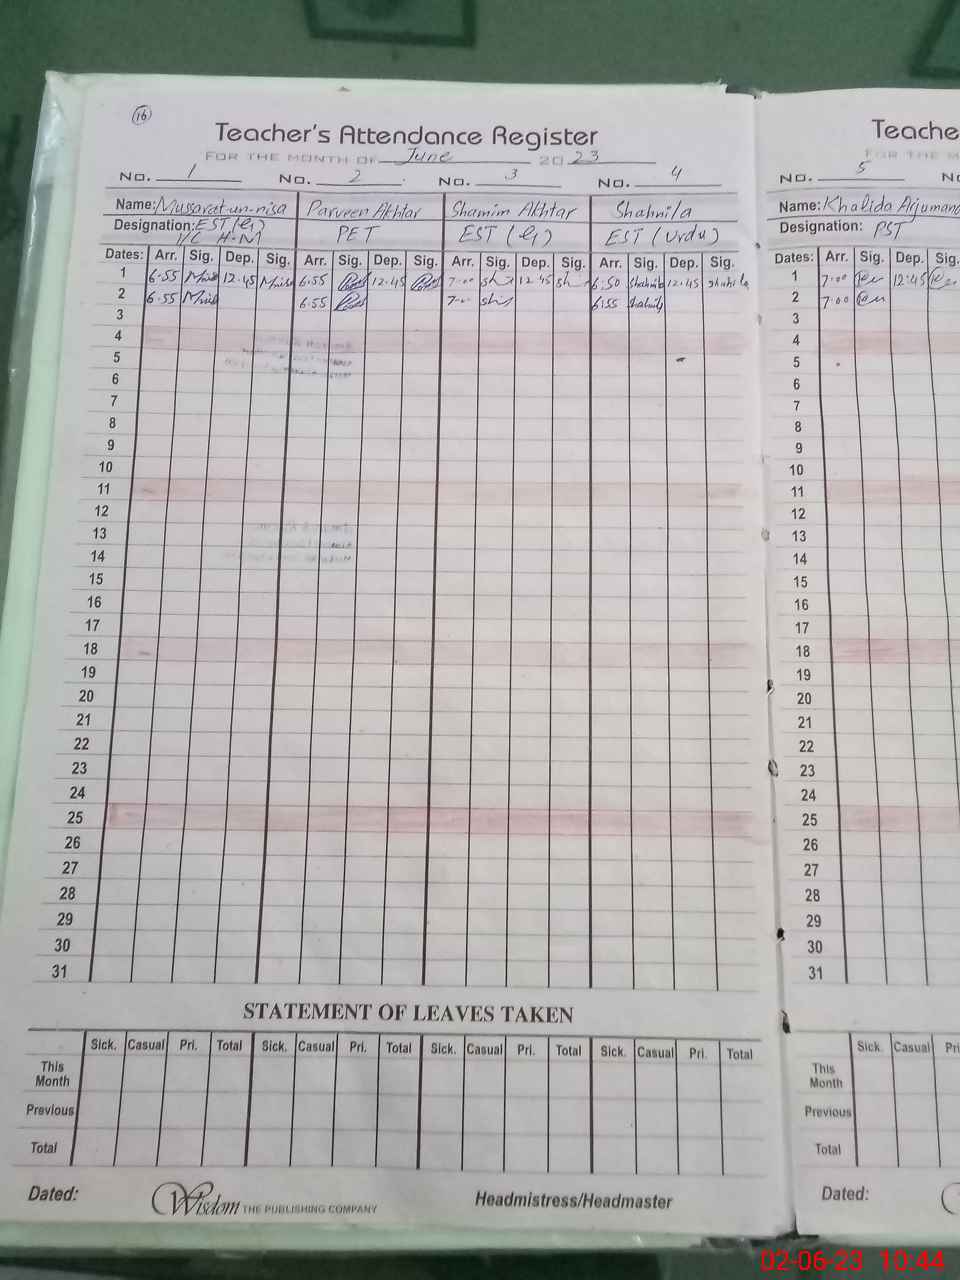 16
Teacher's Attendance Register
FOR THE MONTH OF June 2023
No. 1 No. 2 No. 3 No. 4
Name: Mussarat-un-nisa Parveen Akhtar Shamim Akhtar Shahnila
Designation: EST (G) PET EST (G) EST (Urdu)
I/C H.M
Dates: Arr. Sig. Dep. Sig. Arr. Sig. Dep. Sig. Arr. Sig. Dep. Sig. Arr. Sig. Dep. Sig.
1 6.55 12.45 6.55 12.45 7.00 12.45 6.50 Shahnila 12.45 Shahnila
2 6.55 6.55 7.00 6.55 Shahnila
3
4
5
6
7
8
9
10
11
12
13
14
15
16
17
18
19
20
21
22
23
24
25
26
27
28
29
30
31
STATEMENT OF LEAVES TAKEN
Sick. Casual Pri. Total Sick. Casual Pri. Total Sick. Casual Pri. Total Sick. Casual Pri. Total
This
Month
Previous
Total
Dated: Wisdom THE PUBLISHING COMPANY Headmistress/Headmaster
Teache
FOR THE M
No. 5 No
Name: Khalida Arjumand
Designation: PST
Dates: Arr. Sig. Dep. Sig.
1 7.00 12:45
2 7.00
3
4
5
6
7
8
9
10
11
12
13
14
15
16
17
18
19
20
21
22
23
24
25
26
27
28
29
30
31
Sick. Casual Pri
This
Month
Previous
Total
Dated:
02-06-23 10:44